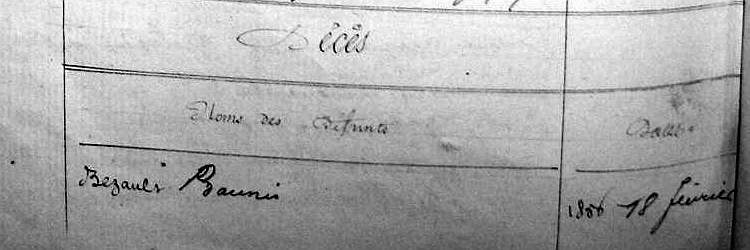 Décès
Noms des Défunts Dates
Bezault 18 février